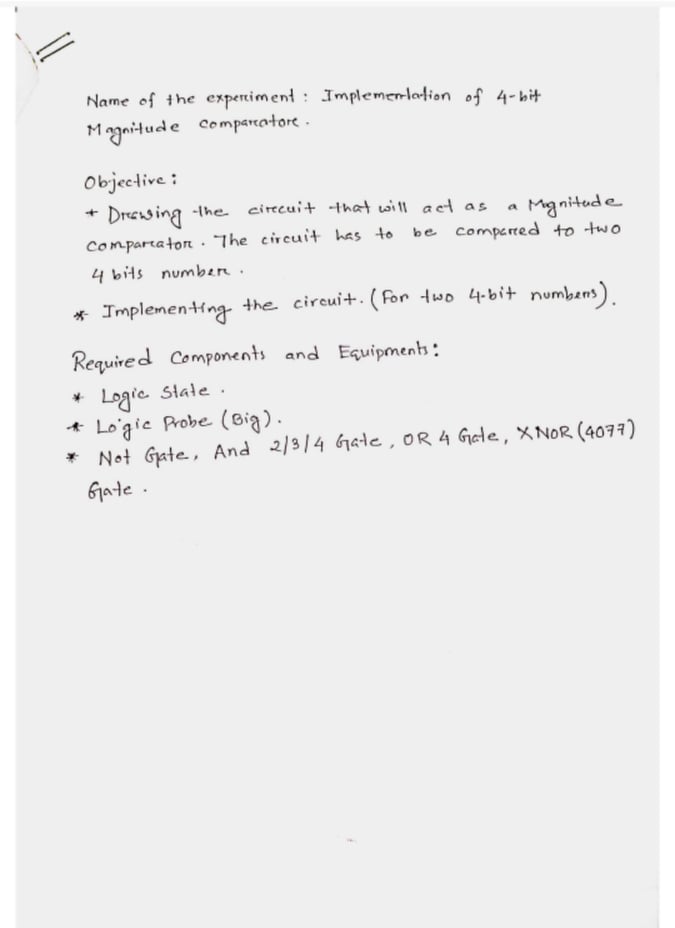 Name of the experiment : Implementation of 4-bit
Magnitude comparatore .
Objective :
* Drawing the circuit that will act as a Mgnitude
comparator . The circuit has to be compared to two
4 bits number .
* Implementing the circuit. (For two 4-bit numbers).
Required Components and Equipments :
* Logic State .
* Logic Probe (Big) .
* Not Gate, And 2/3/4 Gate , OR 4 Gate, XNOR (4077)
Gate .